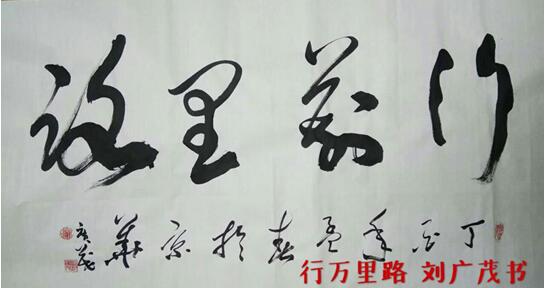 行萬里路
丁酉年孟春於京華
廣茂
行万里路 刘广茂书